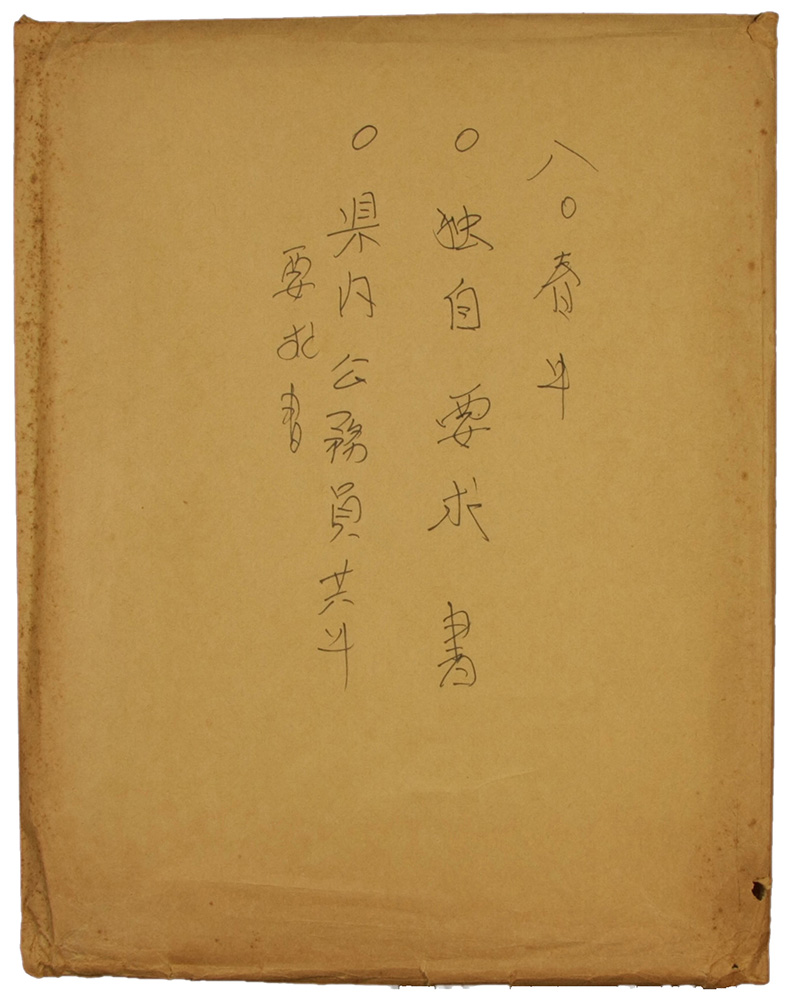 八〇春斗
○独自要求書
○県内公務員共斗
要求書